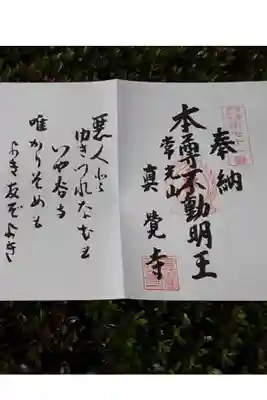 奉納
本尊不動明王
常光山
真覺寺
悪人と
ゆきつれなむと
いや谷寺
唯かりそめも
よき友ぞよき